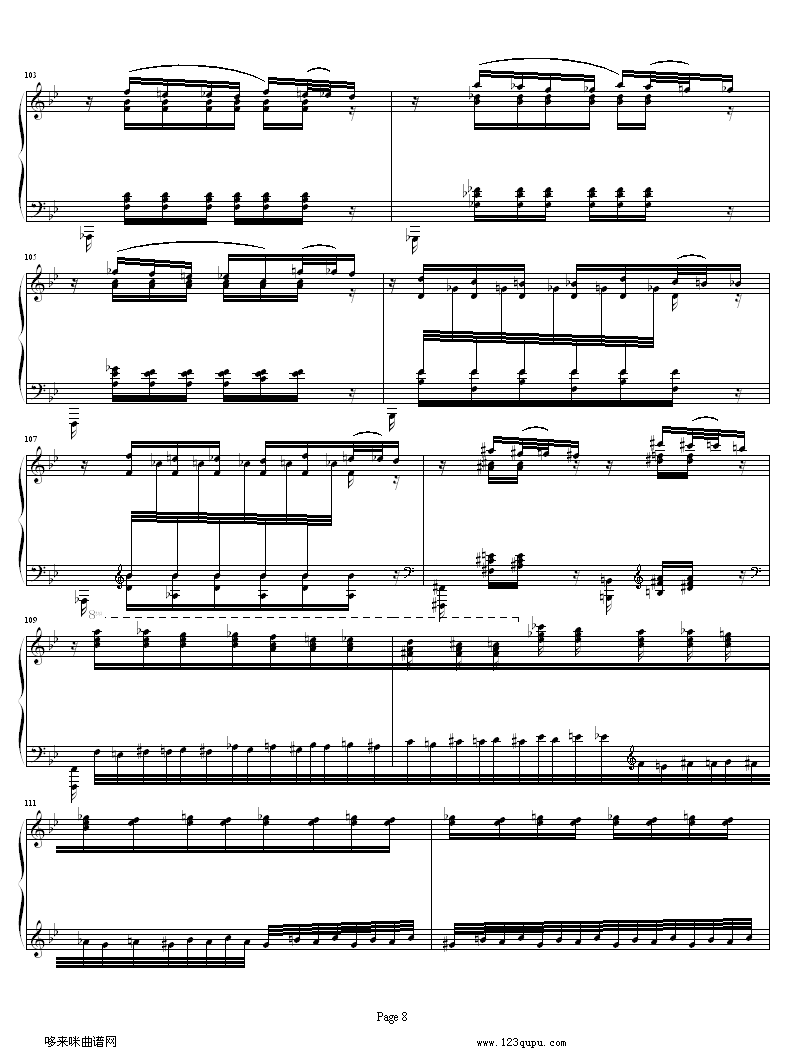 103
105
107
8va
109
111
Page 8
哆来咪曲谱网
www.123qupu.com